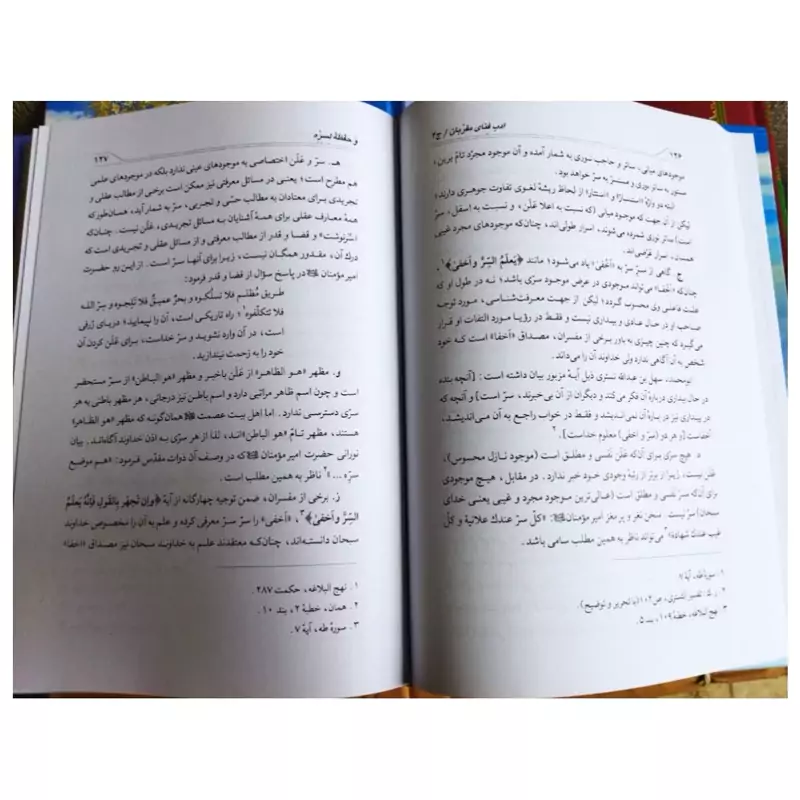 ۱۲۶
ادب فنای مقرّبان / ج۳
موجودهای مبانی، ساتر و حاجب نوری به شمار آمده و آن موجود مجرّد تامّ برین،
مستور به ساتر نوری و مستسرّ به سرّ خواهد بود.
البته دو واژهٔ «استسرار» و «استتار» از لحاظ ریشهٔ لغوی تفاوت جوهری دارند؛
لیکن از آن جهت که موجود مبانی (که نسبت به اعلا عَلَن، و نسبت به اسفل، سرّ
است) ساتر نوری شمرده می‌شوند، اسرار طولی‌اند، چنان‌که موجودهای مجرّد غیبی
همسان، اسرار عَرْضی‌اند.
ج. گاهی از سرّ سرّ به «أخفی» یاد می‌شود؛ مانند ﴿یَعلَمُ السِّرَّ وأخفیٰ﴾۱،
چنان‌که «اخفا» می‌تواند موجودی در عرض موجود سرّی باشد؛ نه در طول او که
علت فاعلی وی محسوب گردد؛ لیکن از جهت معرفت‌شناسی، مورد توجه
صاحب او در حال عادی و بیداری نیست و فقط در رؤیا مورد التفات او قرار
می‌گیرد که چنین چیزی به باور برخی از مفسران، مصداق «اخفا» است که خود
شخص به آن آگاهی ندارد ولی خداوند آن را می‌داند.
ابومحمد، سهل بن عبدالله تستری ذیل آیهٔ مزبور بیان داشته است: [آنچه بنده
در حال بیداری در بارهٔ آن فکر می‌کند و دیگران از آن بی‌خبرند، سرّ است] و آنچه که
در بیداری نیز در بارهٔ آن نمی‌اندیشد و فقط در خواب راجع به آن می‌اندیشد،
أخفاست [و هر دو (سرّ و اخفی) معلوم خداست].۲
د. هیچ سرّی برای آن‌که عَلَن نفسی و مطلق است (موجود نازل محسوس)،
عَلَن نیست، زیرا از برتر از رتبهٔ وجودی خود خبر ندارد. در مقابل، هیچ موجودی
برای آن‌که سرّ نفسی و مطلق است (عالی‌ترین موجود مجرد و غیبی یعنی خدای
سبحان) سرّ نیست. سخن نغز و پر مغز امیر مؤمنان: «کلّ سرّ عندك علانیة و کلّ
غیب عندك شهادة»۳ می‌تواند ناظر به همین مطلب سامی باشد.
۱. سورهٔ طه، آیهٔ ۷.
۲. ر.ك: تفسیر التستری، ص۱۰۲ (با تحریر و توضیح).
۳. نهج البلاغه، خطبهٔ ۱۰۹، بند ۵.
و حفظة لسرّه
۱۲۷
هـ. سرّ و عَلَن اختصاصی به موجودهای عینی ندارد بلکه در موجودهای علمی
هم مطرح است؛ یعنی در مسائل معرفتی نیز ممکن است برخی از مطالب عقلی و
تجریدی برای معتادان به مطالب حسّی و تجربی، سرّ به شمار آید، همان‌طور که
همهٔ معارف عقلی برای همهٔ آشنایان به مسائل تجریدی، عَلَن نیست. چنان‌که
«سرنوشت» و قضا و قدر از مطالب معرفتی و از مسائل عقلی و تجریدی است که
درك آن، مقدور همگان نیست، زیرا برای آنها سرّ است. از این رو حضرت
امیر مؤمنان در پاسخ سؤال از قضا و قدر فرمود:
طریق مُظلم فلا تسلُکوه و بحرٌ عمیقٌ فلا تَلِجوه و سرّ الله
فلا تتکلّفوه۱؛ راه تاریکی است، آن را نپیمایید؛ دریای ژرفی
است، در آن وارد نشوید و سرّ خداست، برای عَلَن کردن آن
خود را به زحمت نیندازید.
و. مظهر «هو الظاهر» از عَلَن باخبر و مظهر «هو الباطن» از سرّ مستحضر
است و چون اسم ظاهر مراتبی دارد و اسم باطن نیز درجاتی، هر مظهر باطنی به هر
سرّی دسترسی ندارد. اما اهل بیت عصمت همان‌گونه که مظهر «هو الظاهر»
هستند، مظهر تامّ «هو الباطن»اند، لذا از هر سرّی به اذن خداوند آگاه‌اند. بیان
نورانی حضرت امیر مؤمنان در وصف آن ذوات مقدّس فرمود: «هم موضع
سرّه...»۲ ناظر به همین مطلب است.
ز. برخی از مفسران، ضمن توجیه چهارگانه از آیهٔ ﴿وإن تَجهَر بِالقَولِ فَإنَّهُ یَعلَمُ
السِّرَّ وأخفیٰ﴾۳، «أخفی» را سرّ سرّ معرفی کرده و علم به آن را مخصوص خداوند
سبحان دانسته‌اند، چنان‌که معتقدند علم به خداوند سبحان نیز مصداق «اخفا»
۱. نهج البلاغه، حکمت ۲۸۷.
۲. همان، خطبهٔ ۲، بند ۱۰.
۳. سورهٔ طه، آیهٔ ۷.